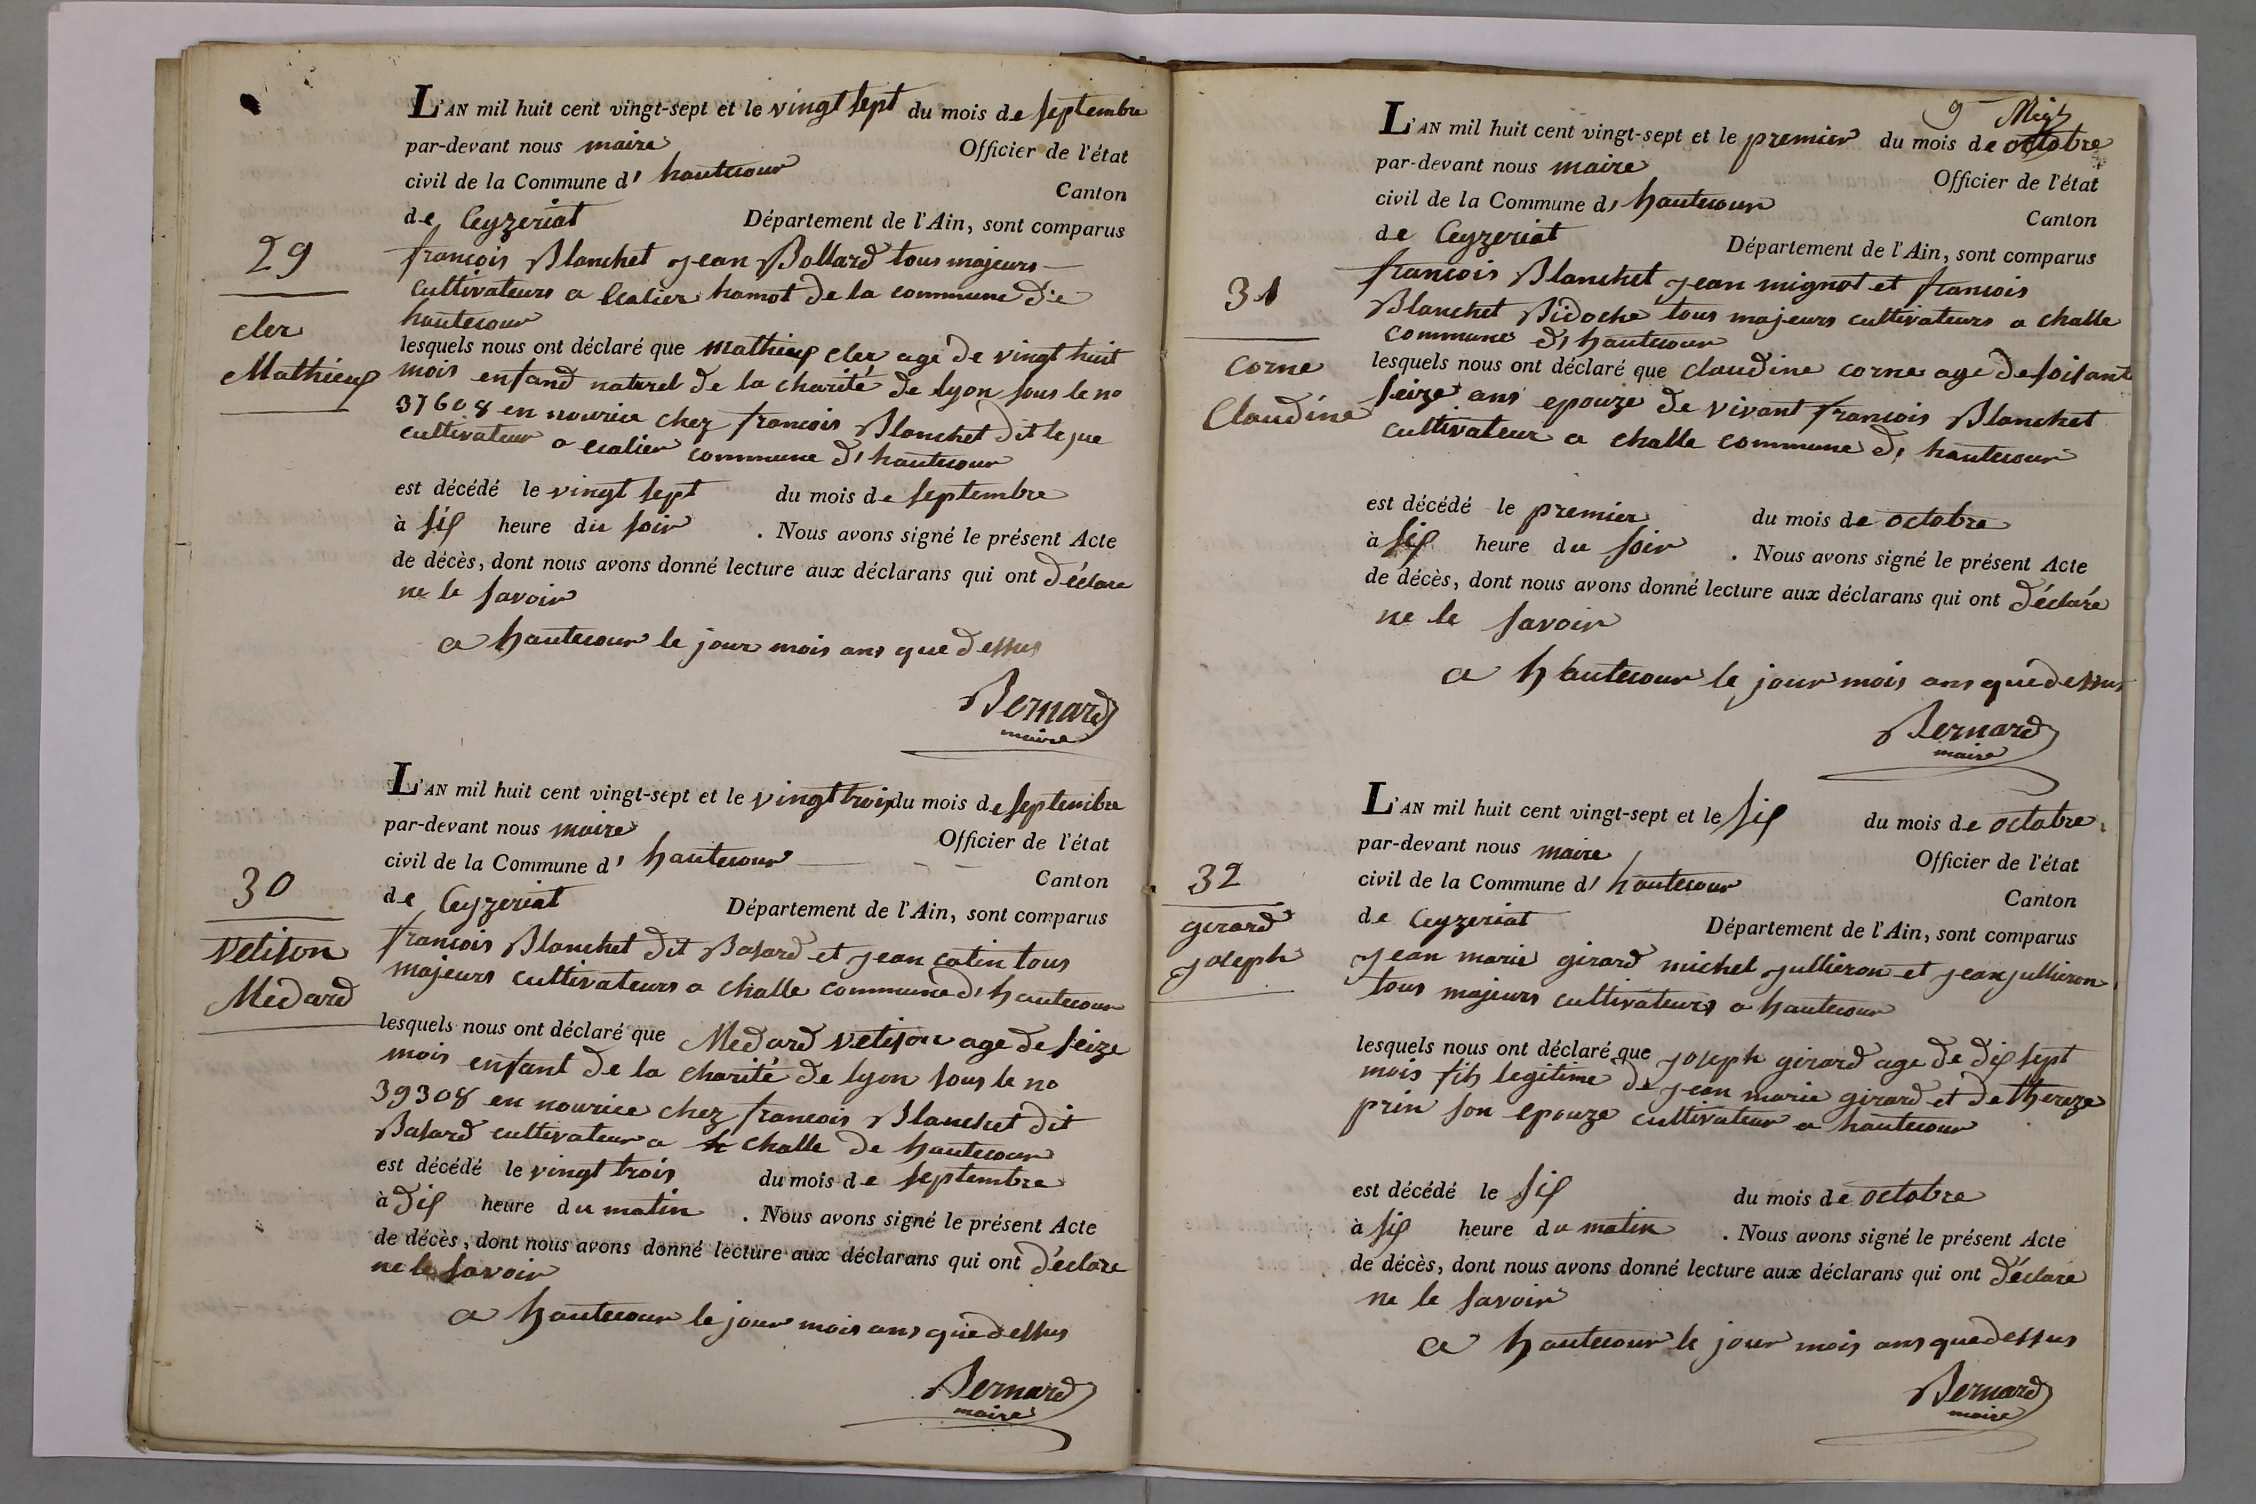 L'AN mil huit cent vingt-sept et le vingt sept du mois de septembre
par-devant nous maire Officier de l'état
civil de la Commune d' hautecour Canton
de Ceyzeriat Département de l'Ain, sont comparus
29
francois Blanchet Jean Bollard tous majeurs
cultivateurs a hamot de la commune de
hautecour
cler
Mathieux
lesquels nous ont déclaré que Mathieux cler age de vingt huit
mois enfand naturel de la charité de lyon sous le no
37608 en nourice chez francois Blanchet dit
cultivateur a commune d' hautecour
est décédé le vingt sept du mois de septembre
à six heure du soir . Nous avons signé le présent Acte
de décès, dont nous avons donné lecture aux déclarans qui ont déclare
ne le savoir
a hautecour le jour mois ans que dessus
Bernard
maire
L'AN mil huit cent vingt-sept et le vingt trois du mois de septembre
par-devant nous maire Officier de l'état
civil de la Commune d' hautecour Canton
de Ceyzeriat Département de l'Ain, sont comparus
30
Vetison
Medard
francois Blanchet dit Basard et Jean catin tous
majeurs cultivateurs a challe commune d' hautecour
lesquels nous ont déclaré que Medard Vetison age de seize
mois enfant de la charité de lyon sous le no
39308 en nourice chez francois Blanchet dit
Basard cultivateur a challe de hautecour
est décédé le vingt trois du mois de septembre
à dix heure du matin . Nous avons signé le présent Acte
de décès, dont nous avons donné lecture aux déclarans qui ont déclare
ne le savoir
a hautecour le jour mois ans que dessus
Bernard
maire
9
L'AN mil huit cent vingt-sept et le premier du mois de octobre
par-devant nous maire Officier de l'état
civil de la Commune d' hautecour Canton
de Ceyzeriat Département de l'Ain, sont comparus
31
corne
Claudine
francois Blanchet Jean mignot et francois
Blanchet Bidoche tous majeurs cultivateurs a challe
commune d' hautecour
lesquels nous ont déclaré que claudine corne age de soisant
seize ans epouze de vivant francois Blanchet
cultivateur a challe commune d' hautecour
est décédé le premier du mois de octobre
à six heure du soir . Nous avons signé le présent Acte
de décès, dont nous avons donné lecture aux déclarans qui ont déclaré
ne le savoir
a hautecour le jour mois ans que dessus
Bernard
maire
L'AN mil huit cent vingt-sept et le six du mois de octobre
par-devant nous maire Officier de l'état
civil de la Commune d' hautecour Canton
de Ceyzeriat Département de l'Ain, sont comparus
32
girard
Joseph
Jean marie girard michel Jullieron et Jean jullieron
tous majeurs cultivateurs a hautecour
lesquels nous ont déclaré que Joseph girard age de dix sept
mois fils legitime de Jean marie girard et de thereze
prin son epouze cultivateur a hautecour
est décédé le six du mois de octobre
à six heure du matin . Nous avons signé le présent Acte
de décès, dont nous avons donné lecture aux déclarans qui ont déclare
ne le savoir
a hautecour le jour mois ans que dessus
Bernard
maire